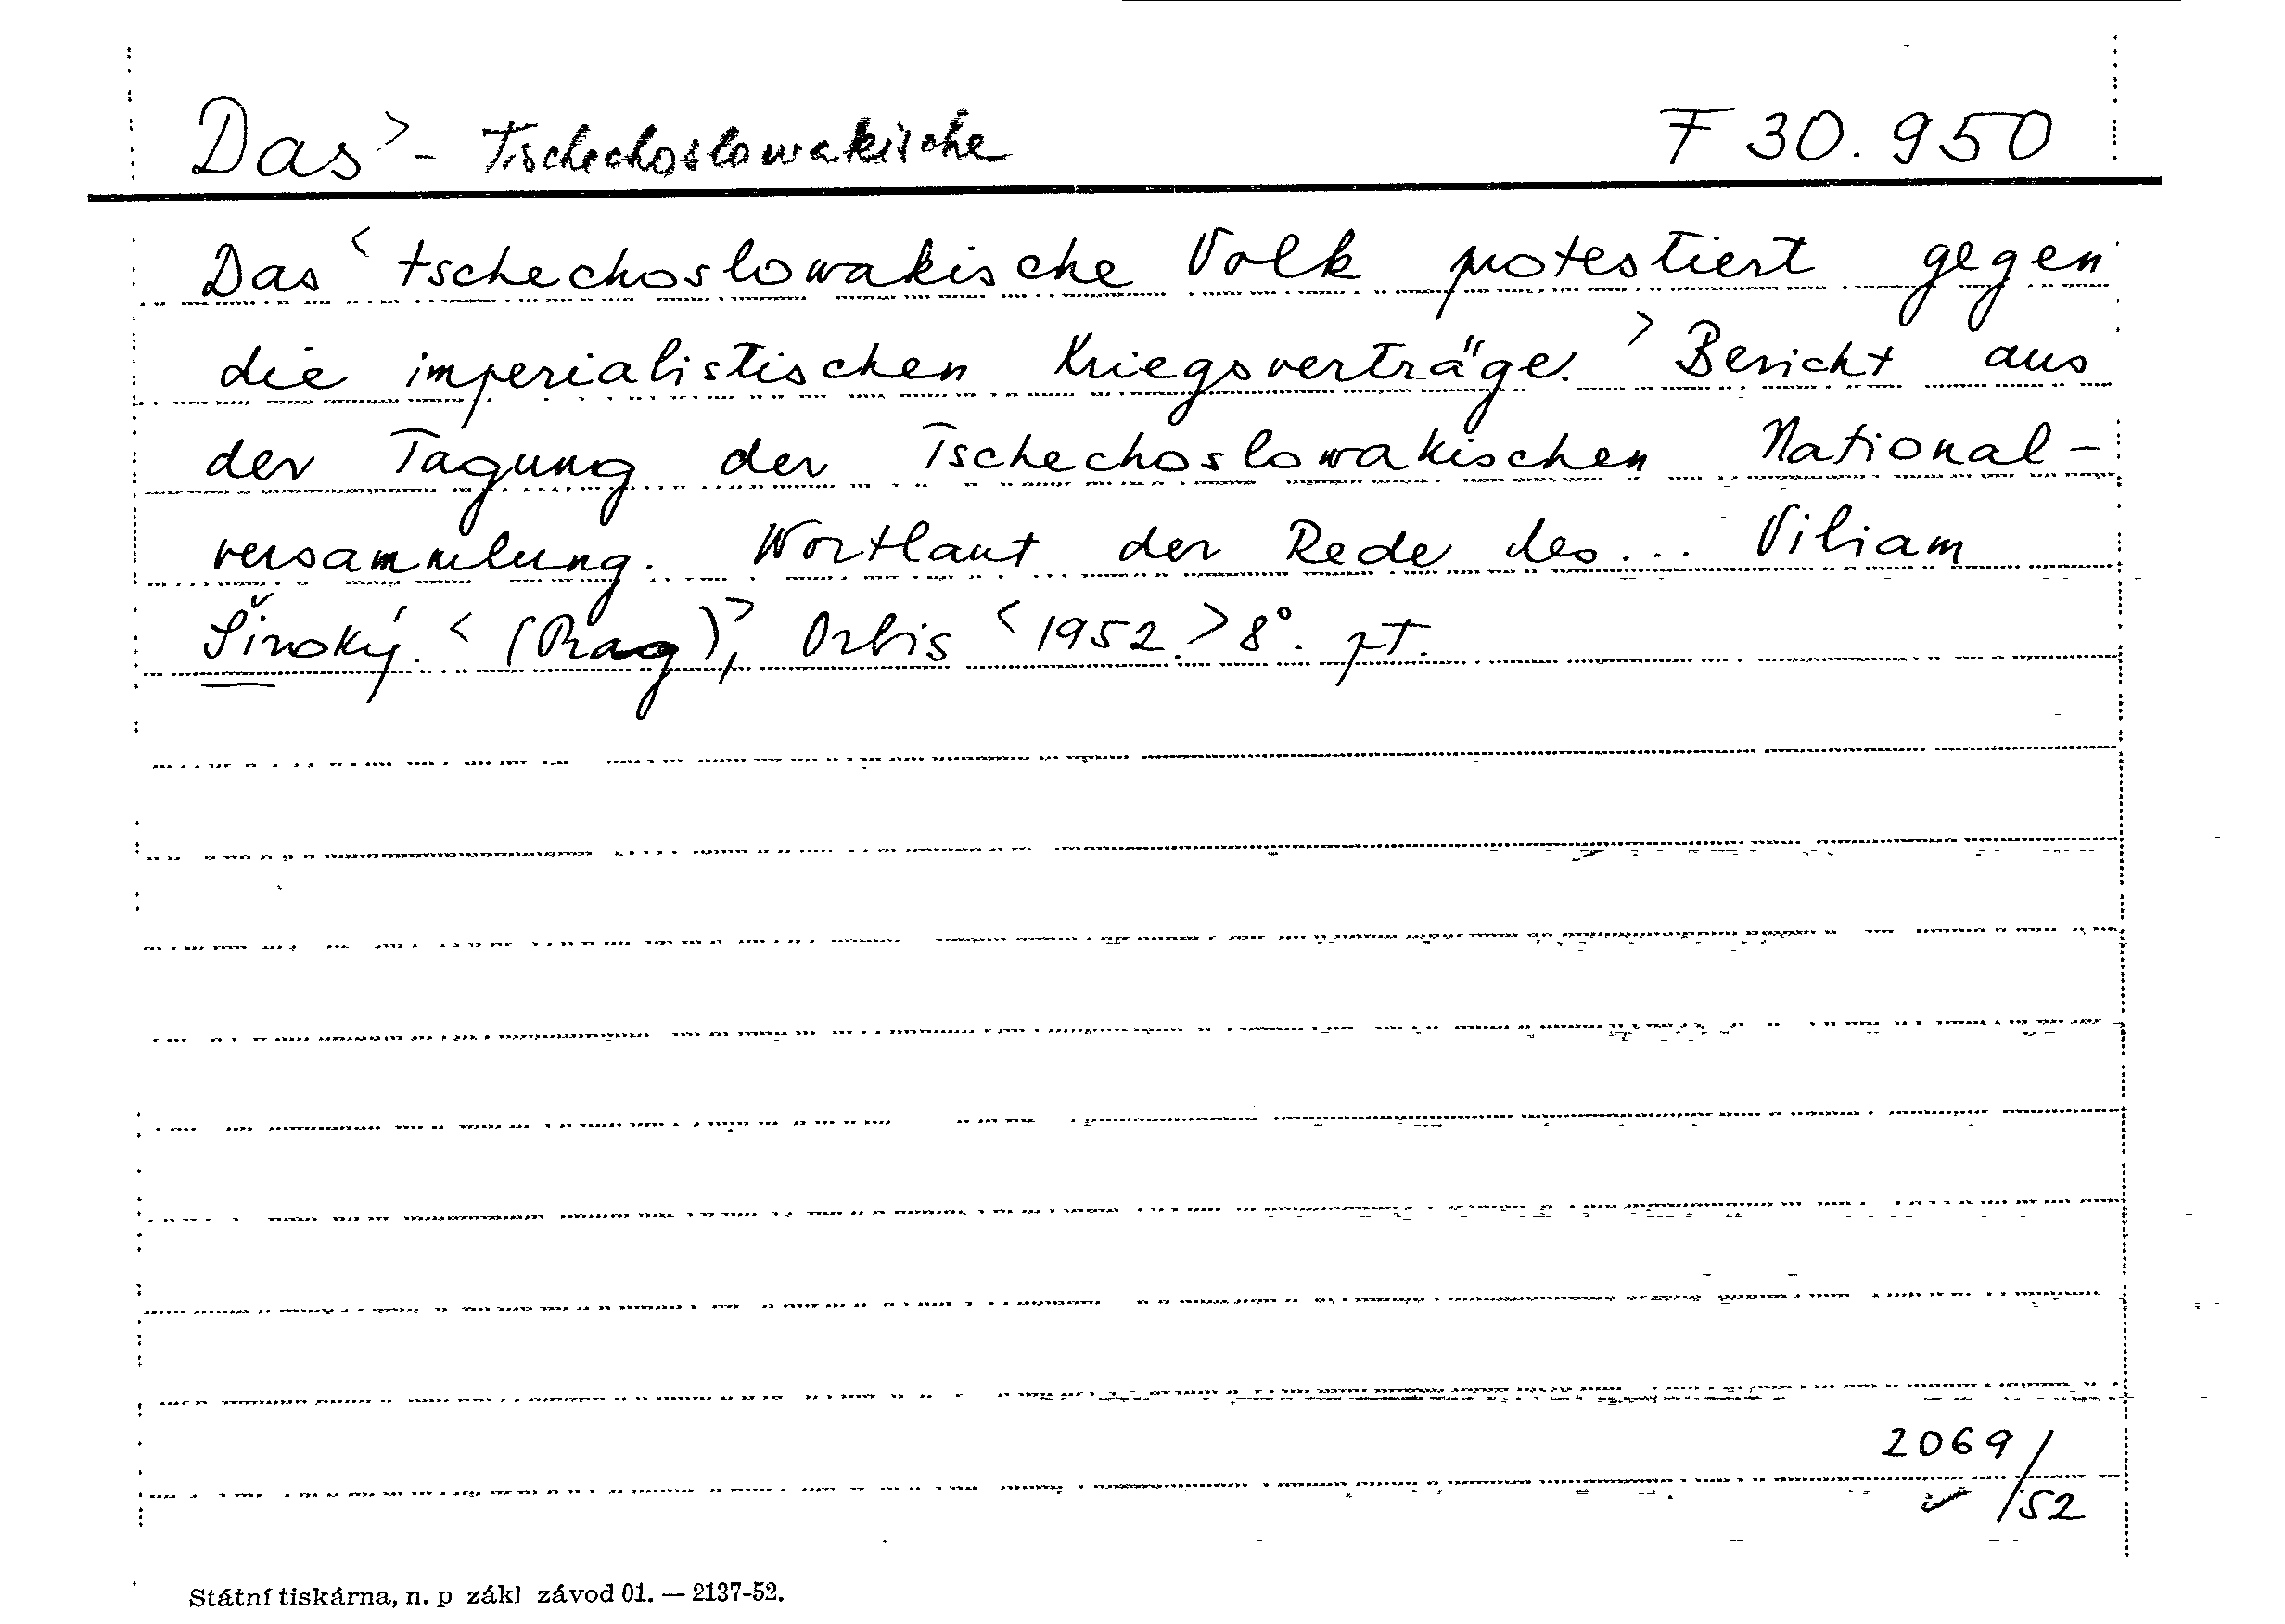 Das > - Tschechoslowakische F 30.950
Das < tschechoslowakische Volk protestiert gegen
die imperialistischen Kriegsverträge. > Bericht aus
der Tagung der Tschechoslowakischen National-
versammlung. Wortlaut der Rede des... Viliam
Široký. < (Prag) >, Orbis < 1952. > 8°. pT.
2069/52
Státní tiskárna, n. p zákl závod 01. — 2137-52.